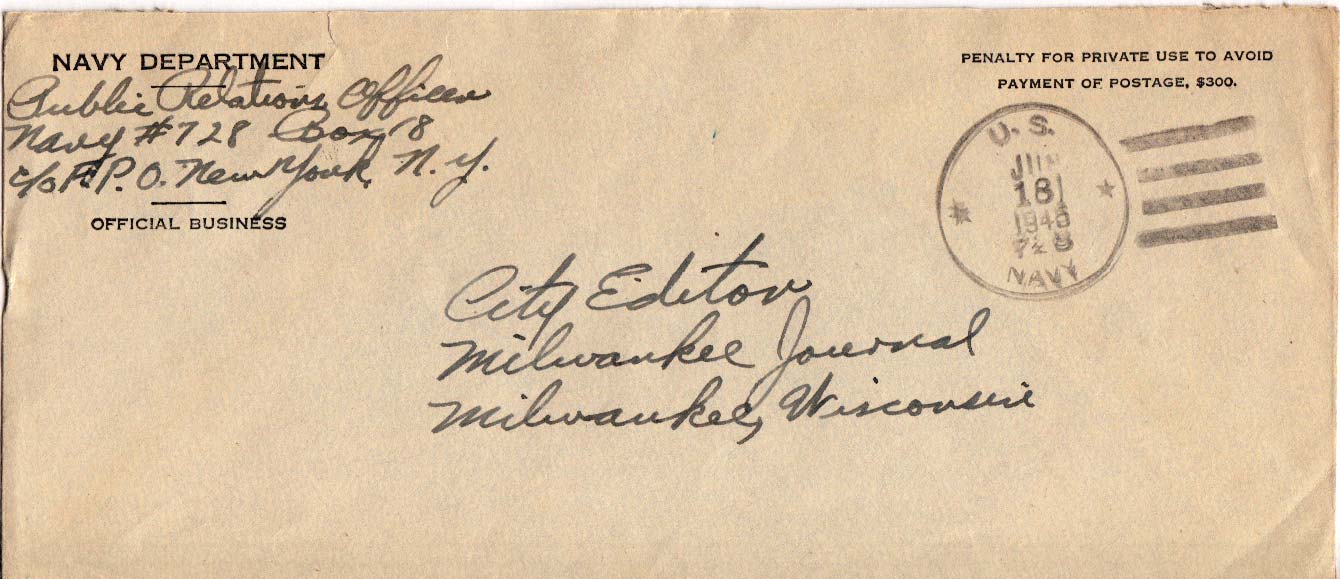 NAVY DEPARTMENT
Public Relations Officer
Navy #728 Box 18
c/o F.P.O. New York, N.Y.
OFFICIAL BUSINESS
PENALTY FOR PRIVATE USE TO AVOID
PAYMENT OF POSTAGE, $300.
U.S.
JUN
18
NAVY
City Editor
Milwaukee Journal
Milwaukee, Wisconsin